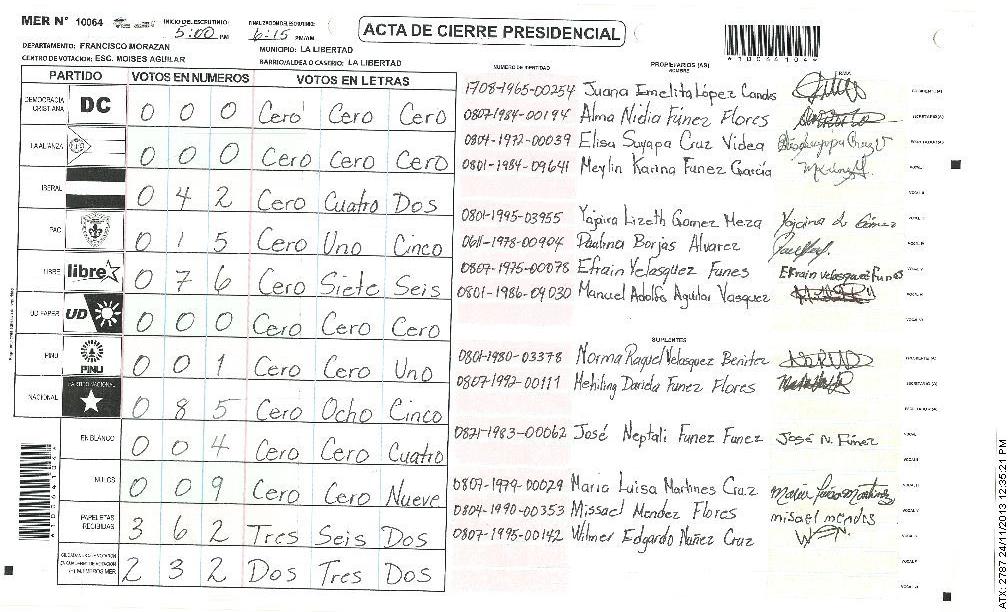 MER N° 10064
INICIO DEL ESCRUTINIO: 5:00 PM
FINALIZACION DEL ESCRUTINIO: 6:15 PM/AM
ACTA DE CIERRE PRESIDENCIAL
DEPARTAMENTO: FRANCISCO MORAZAN
MUNICIPIO: LA LIBERTAD
CENTRO DE VOTACION: ESC. MOISES AGUILAR
BARRIO/ALDEA O CASERIO: LA LIBERTAD
PARTIDO VOTOS EN NUMEROS VOTOS EN LETRAS
DEMOCRACIA CRISTIANA DC 0 0 0 Cero Cero Cero
LA ALIANZA 0 0 0 Cero Cero Cero
LIBERAL 0 4 2 Cero Cuatro Dos
PAC 0 1 5 Cero Uno Cinco
LIBRE libre 0 7 6 Cero Siete Seis
UD FAPER UD 0 0 0 Cero Cero Cero
PINU PINU 0 0 1 Cero Cero Uno
NACIONAL PARTIDO NACIONAL 0 8 5 Cero Ocho Cinco
EN BLANCO 0 0 4 Cero Cero Cuatro
NULOS 0 0 9 Cero Cero Nueve
PAPELETAS RECIBIDAS 3 6 2 Tres Seis Dos
2 3 2 Dos Tres Dos
NUMERO DE IDENTIDAD PROPIETARIOS (AS) NOMBRE FIRMA
1708-1965-00254 Juana Emelita López
0807-1984-00194 Alma Nidia Fúnez Flores
0804-1972-00039 Elisa Suyapa Cruz Videa
0801-1984-09641 Meylin Karina Funez García
0801-1995-03955 Yajaira Lizeth Gomez Meza
0611-1978-00904 Paulina Borjas Alvarez
0807-1975-00078 Efrain Velasquez Funes Efrain velasquez Funes
0801-1986-09030 Manuel Adolfo Aguilar Vasquez
SUPLENTES
0801-1980-03378 Norma Raquel Velasquez Benitez
0807-1992-00111 Hehiling Dariela Funez Flores
0821-1983-00062 José Neptali Funez Funez José N. Fúnez
0807-1979-00029 Maria Luisa Martines Cruz
0804-1990-00353 Missael Mendez Flores misael mendes
0807-1995-00142 Wilmer Edgardo Nuñez Cruz
ATX: 2787 24/11/2013 12:35:21 PM